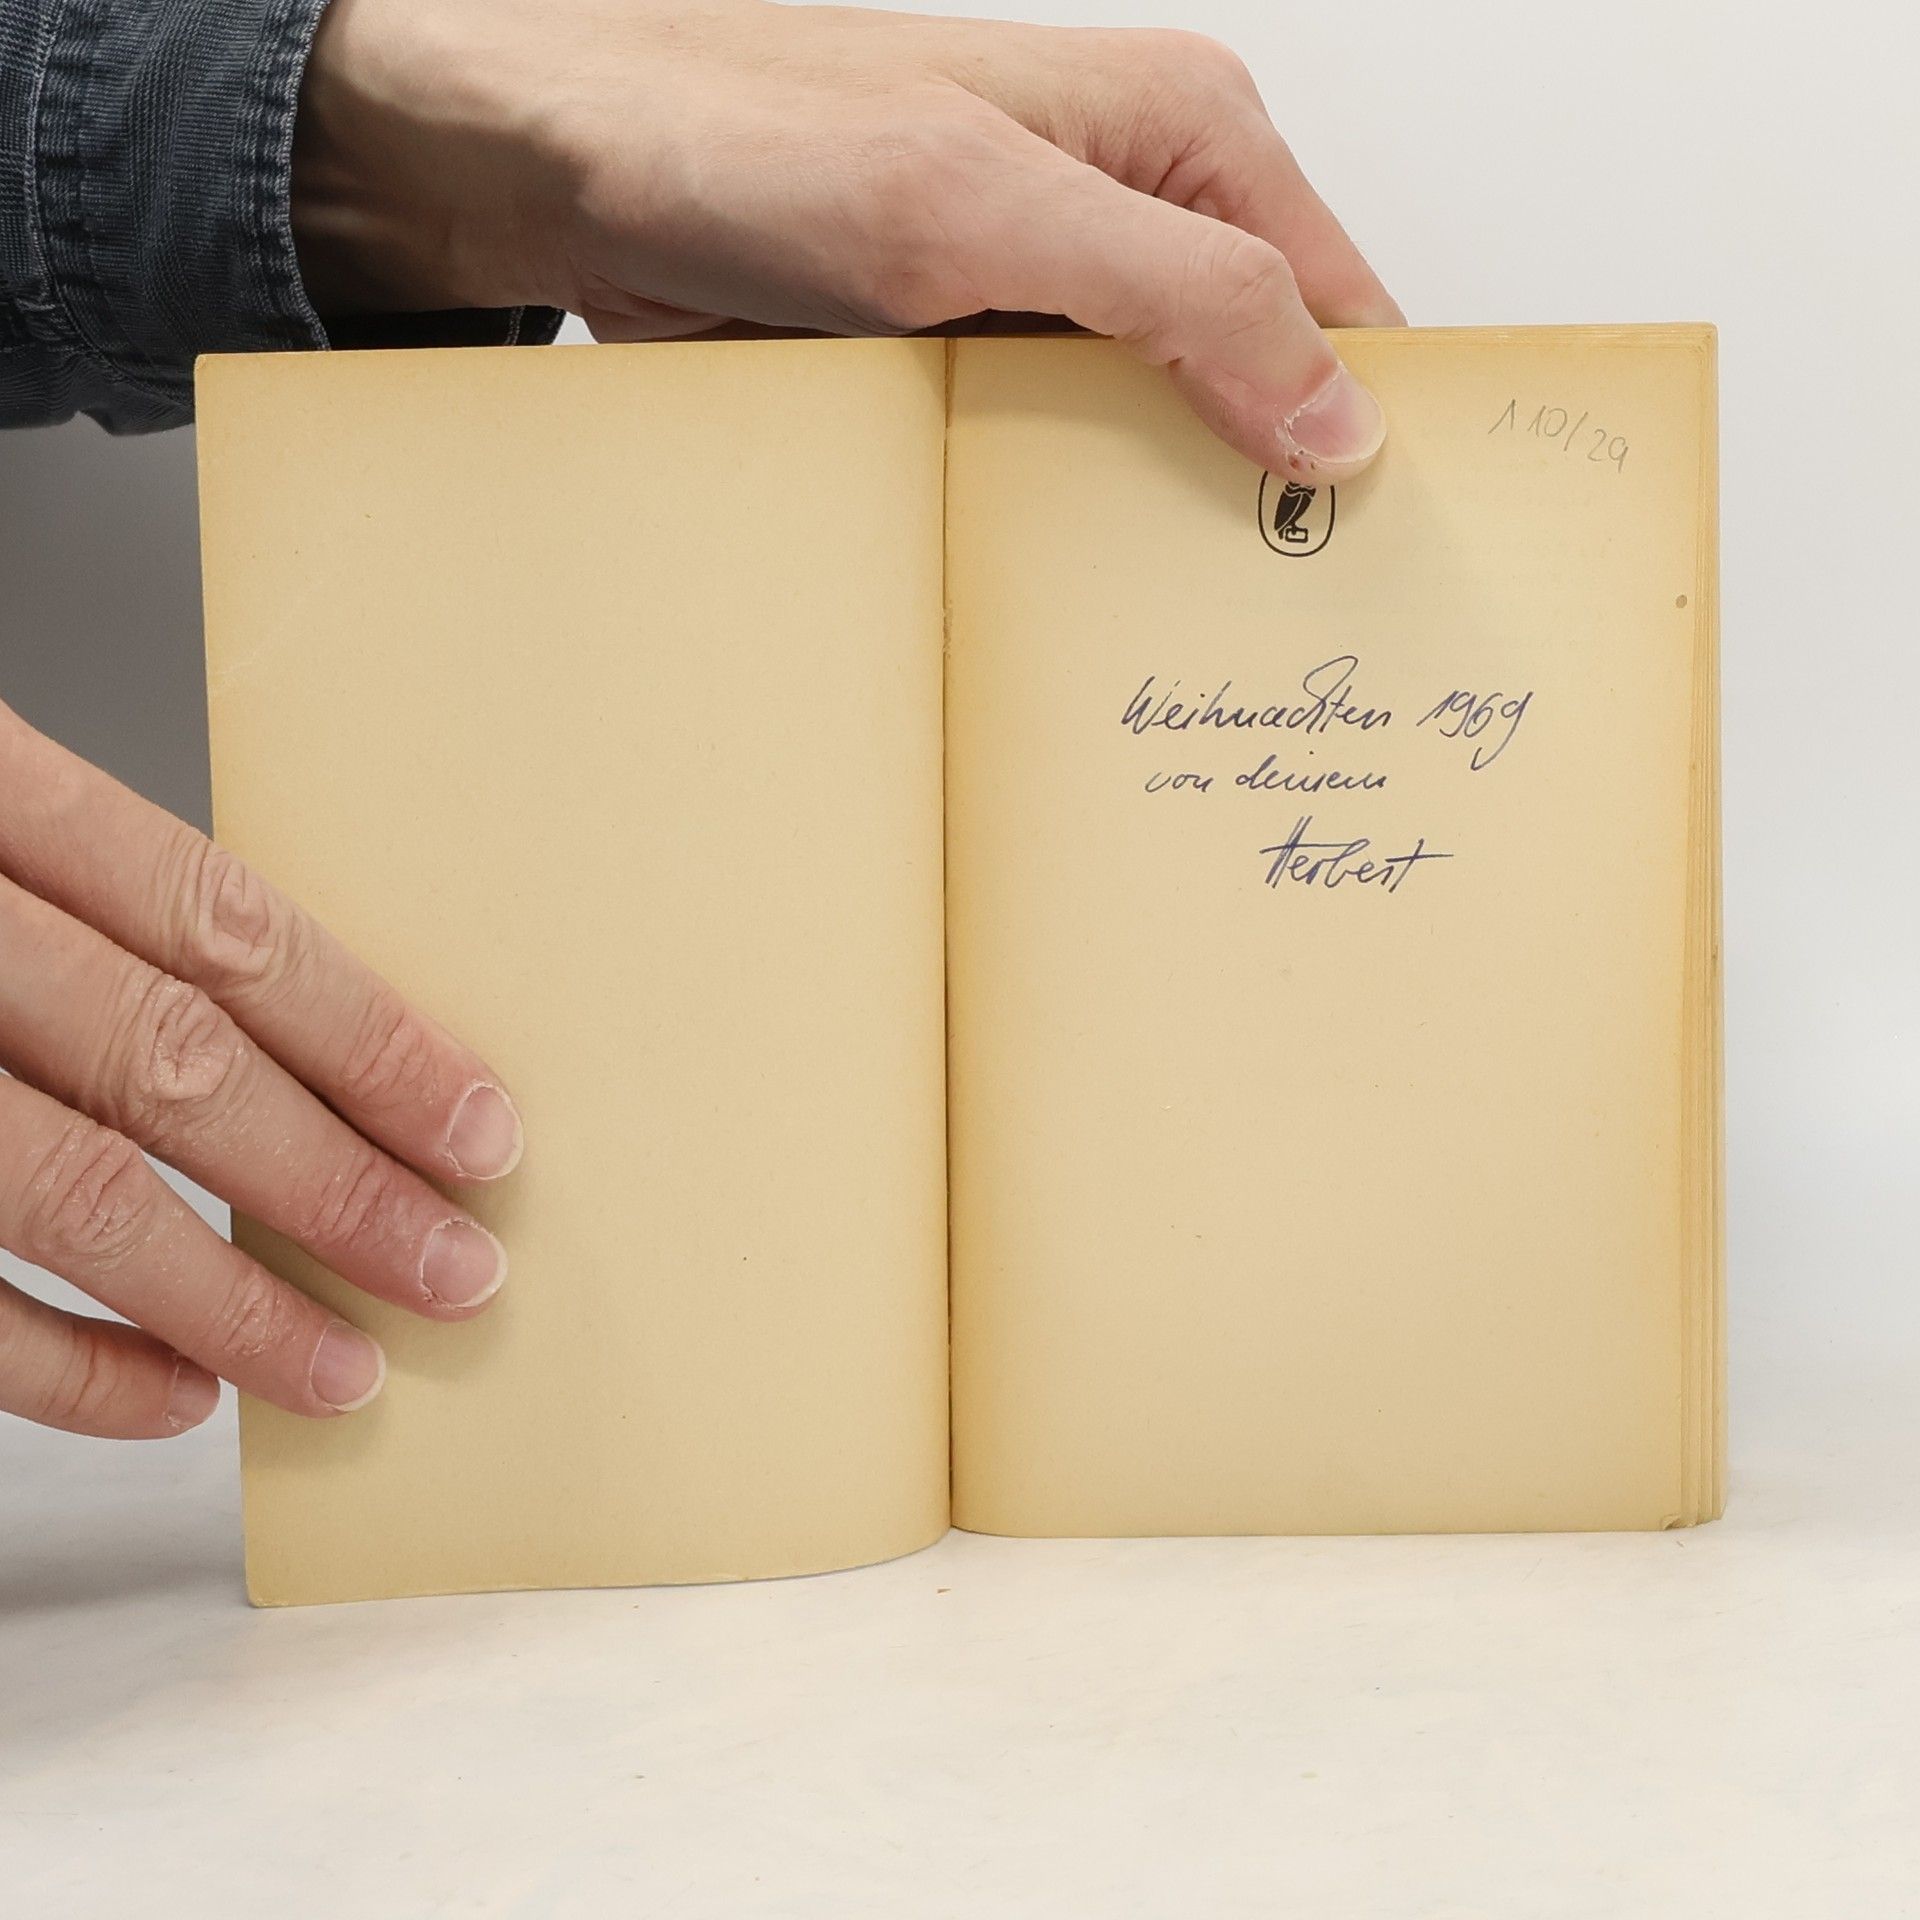 110/29
Weihnachten 1969
von deinem
Herbert